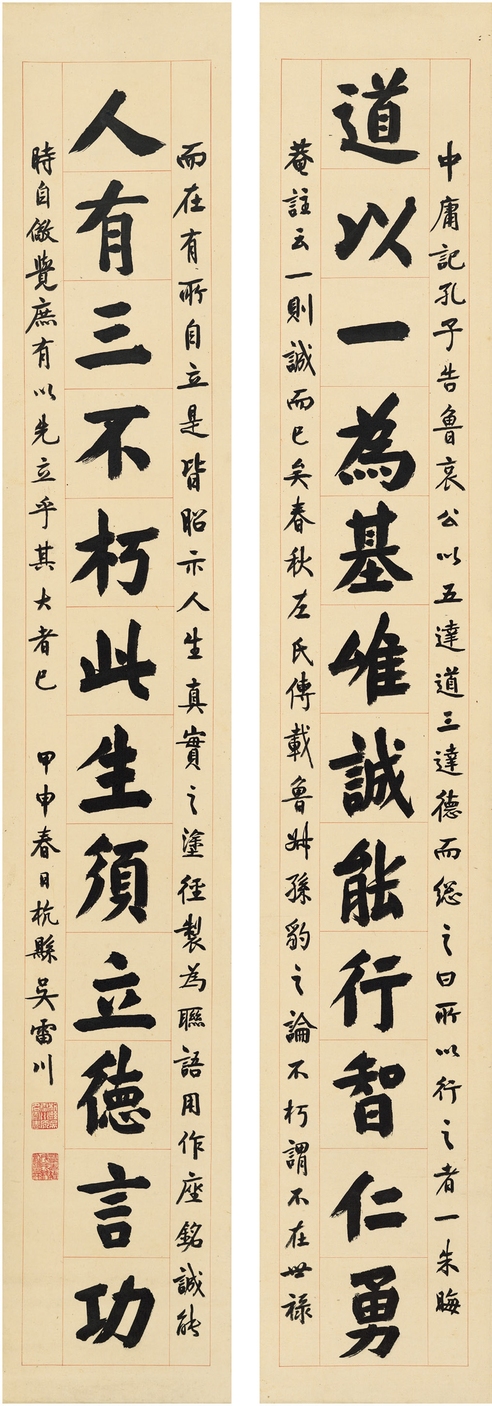 中庸記孔子告魯哀公以五達道三達德而總之曰所以行之者一朱晦
道以一為基惟誠能行智仁勇
菴註云一則誠而已矣春秋左氏傳載魯叔孫豹之論不朽謂不在世祿
而在有所自立是皆昭示人生真實之塗徑製為聯語用作座銘誠能
人有三不朽此生須立德言功
時自儆覺庶有以先立乎其大者已 甲申春日杭縣吳雷川